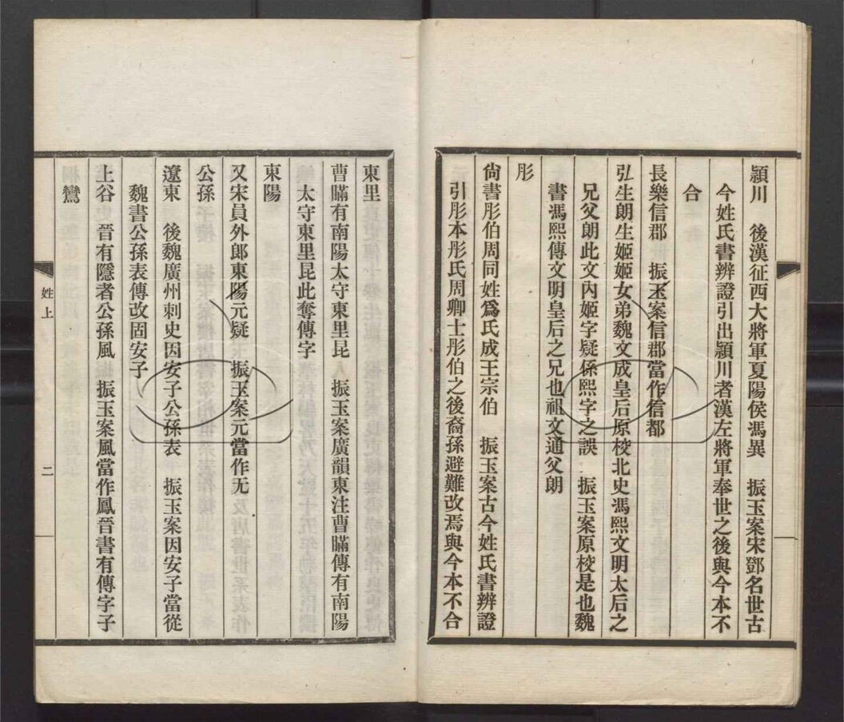 潁川　後漢征西大將軍夏陽侯馮異　振玉案宋鄧名世古
今姓氏書辨證引出潁川者漢左將軍奉世之後與今本不
合
長樂信郡　振玉案信郡當作信都
弘生朗生姬姬女弟魏文成皇后原校北史馮熙文明太后之
兄父朗此文內姬字疑係熙字之誤　振玉案原校是也魏
書馮熙傳文明皇后之兄也祖文通父朗
彤
尙書彤伯周同姓爲氏成王宗伯　振玉案古今姓氏書辨證
引彤本彤氏周卿士彤伯之後裔孫避難改焉與今本不合
東里
曹瞞有南陽太守東里昆　振玉案廣韻東注曹瞞傳有南陽
太守東里昆此奪傳字
東陽
又宋員外郞東陽元疑　振玉案元當作无
公孫
遼東　後魏廣州刺史因安子公孫表　振玉案因安子當從
魏書公孫表傳改固安子
上谷　晉有隱者公孫風　振玉案風當作鳳晉書有傳字子
鸞
姓上
二